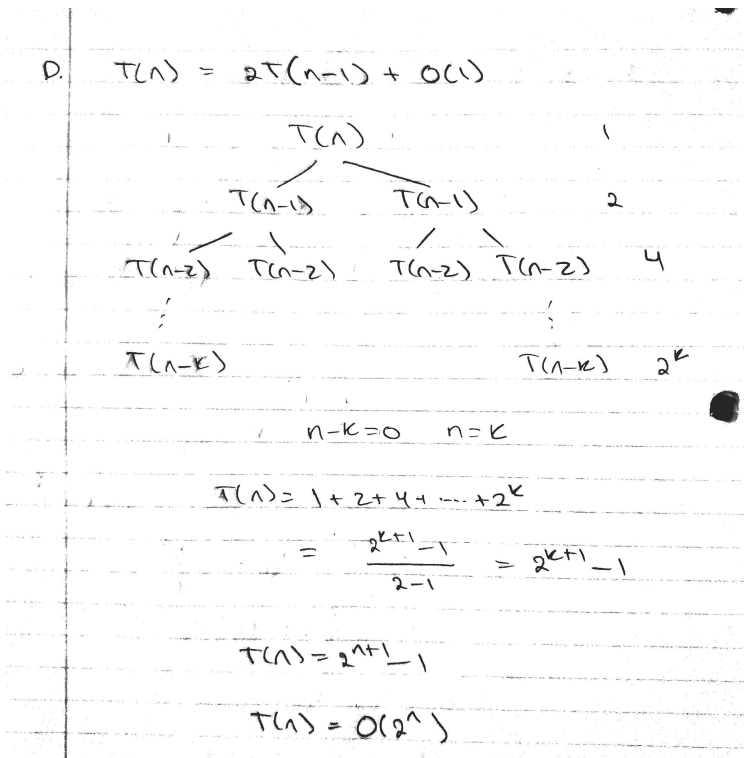 D. T(n) = 2T(n-1) + O(1)
T(n) 1
T(n-1) T(n-1) 2
T(n-2) T(n-2) T(n-2) T(n-2) 4
⋮ ⋮
T(n-k) T(n-k) 2^k
n-k=0 n=k
T(n) = 1+2+4+....+2^k
= (2^{k+1}-1)/(2-1) = 2^{k+1}-1
T(n) = 2^{n+1}-1
T(n) = O(2^n)